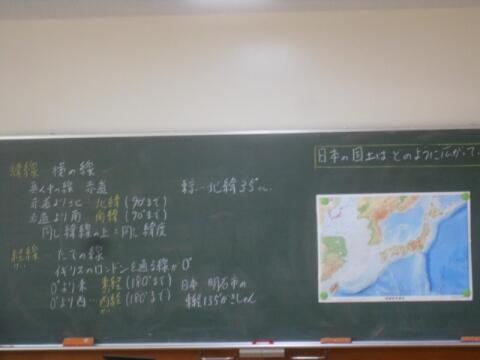 日本の国土はどのように広がって
緯線 横の線
真ん中の線 赤道
赤道より北 北緯(90まで)
赤道より南 南緯(90°まで)
同じ緯線の上=同じ緯度
東京…北緯35°
経線 たての線
イギリスのロンドンを通る線が0°
0°より東 東経(180°まで)
0°より西…西経(180°まで)
日本 明石市の
東経135°